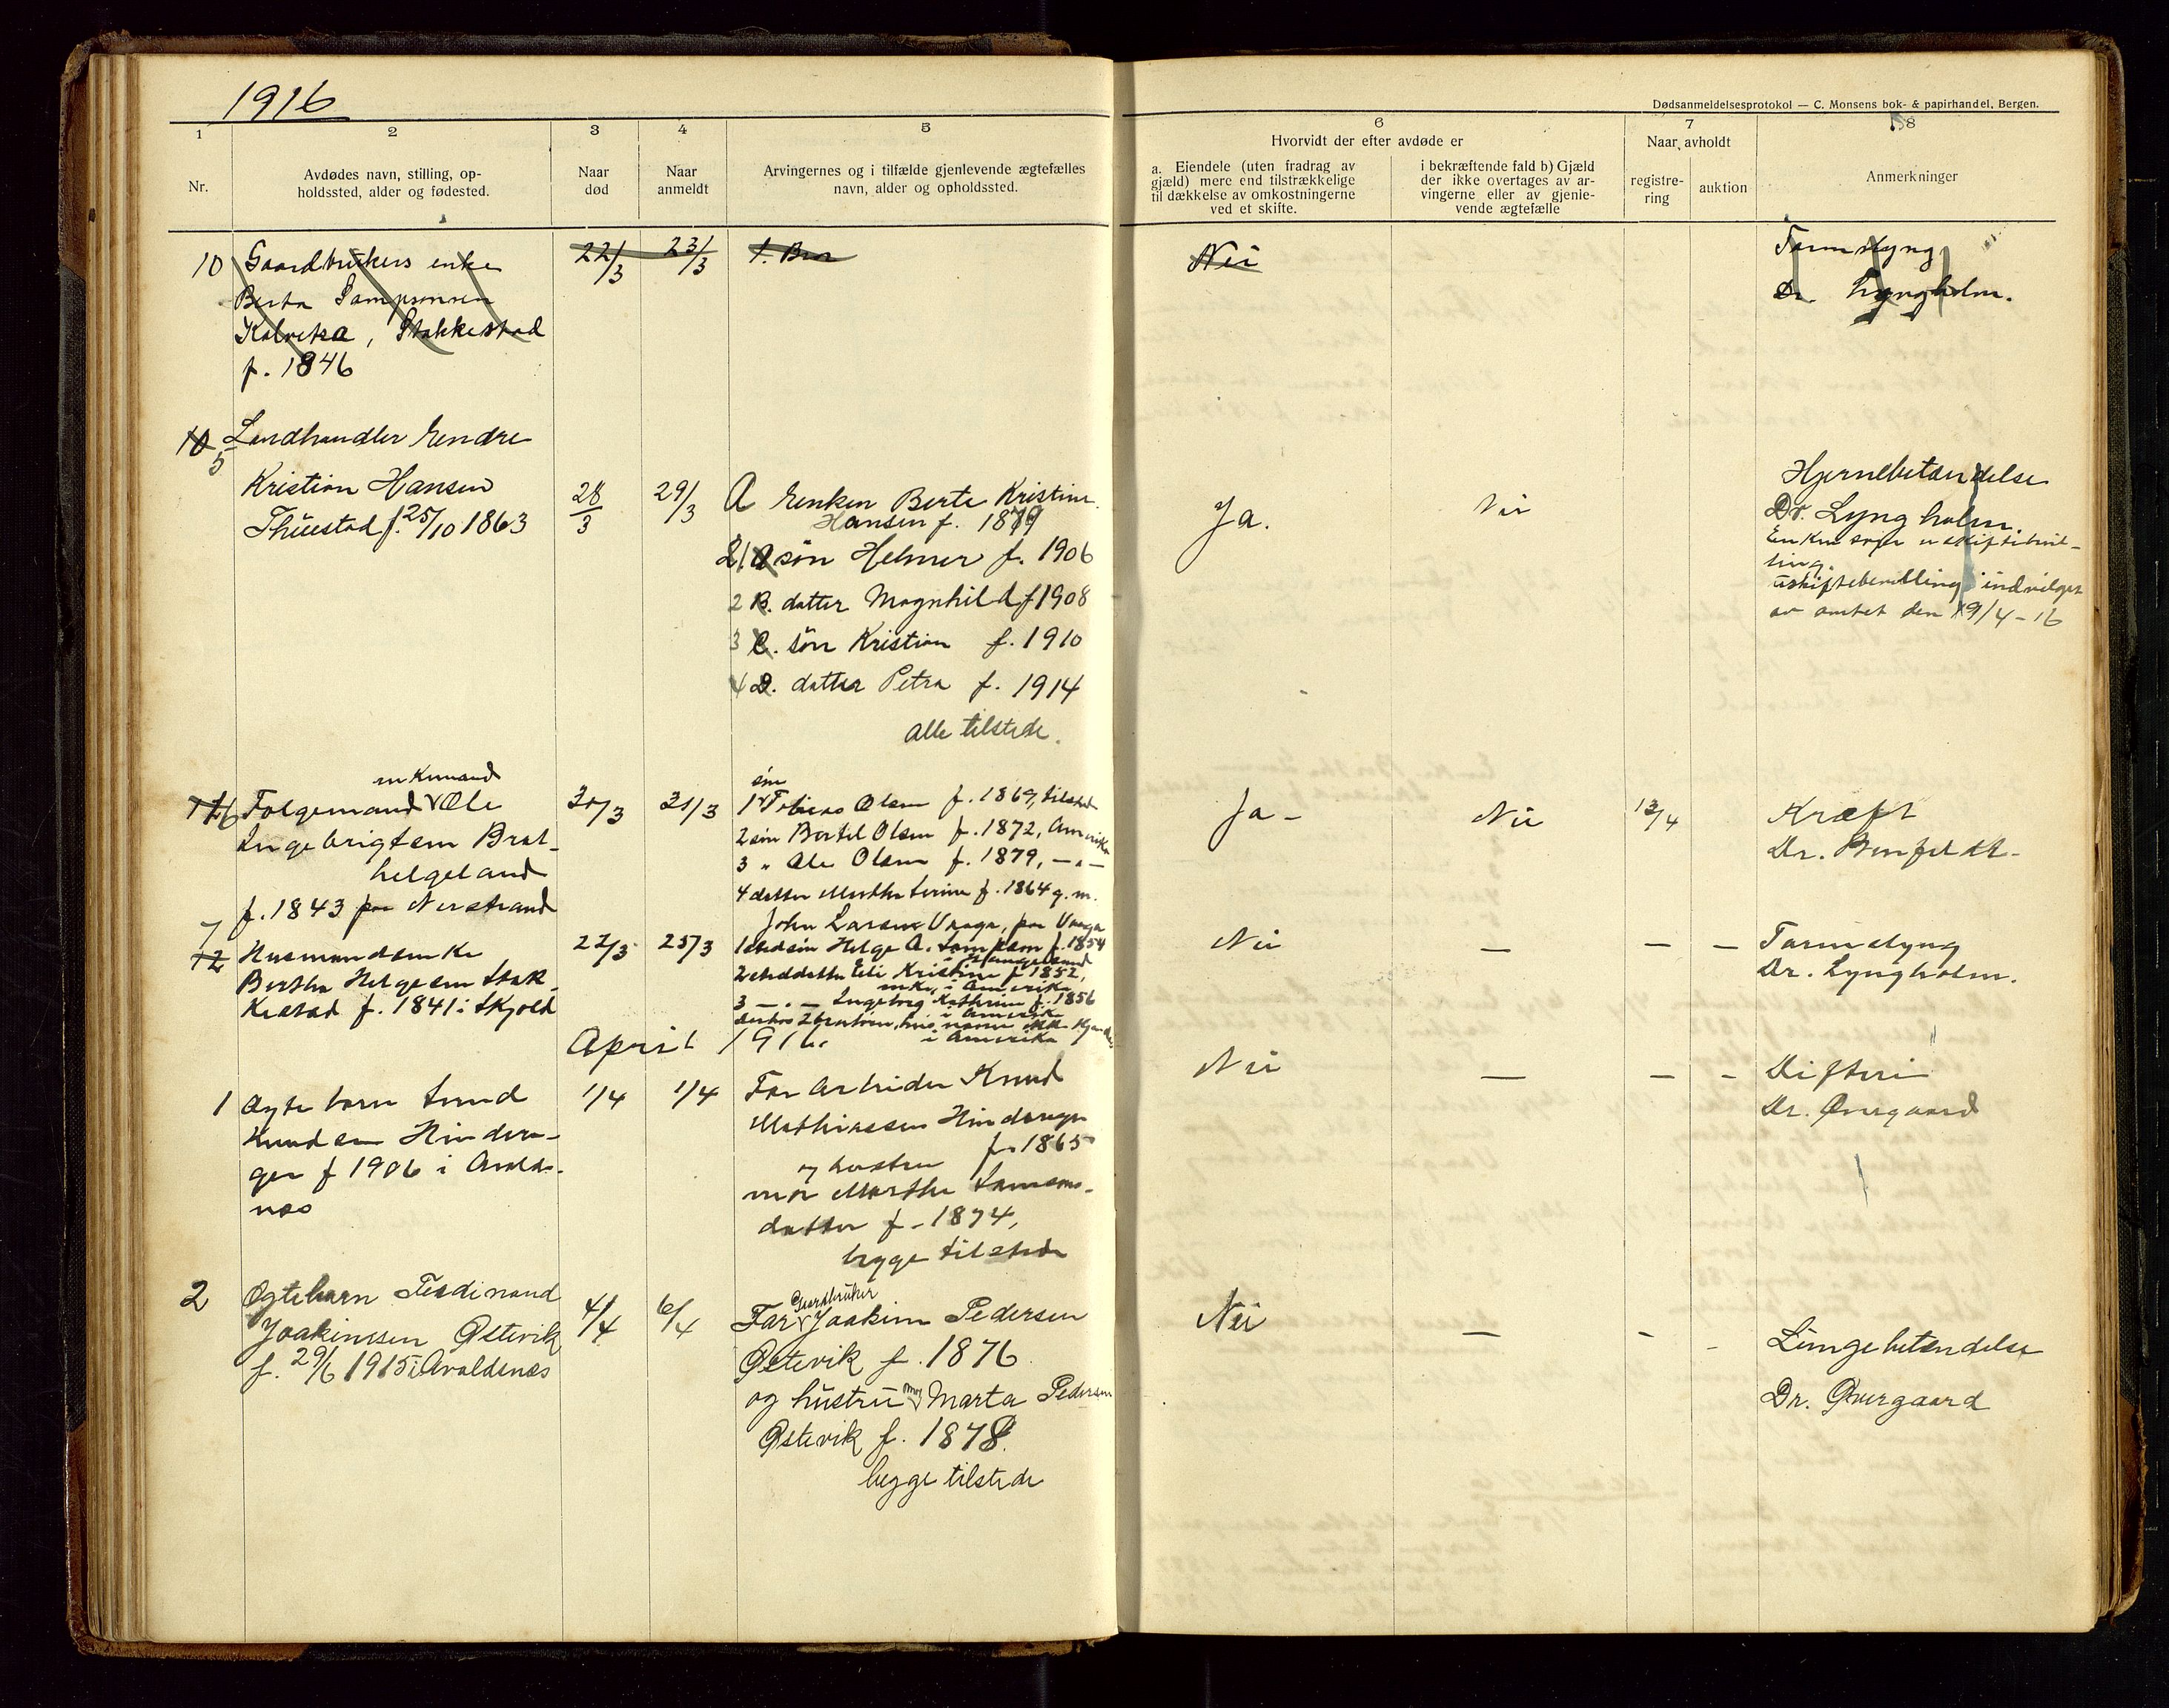 1916
Dødsanmeldelsesprotokol — C. Monsens bok- & papirhandel, Bergen.
1
2
3
4
5
6
7
8
Nr.
Avdødes navn, stilling, op-
holdssted, alder og fødested.
Naar
død
Naar
anmeldt
Arvingernes og i tilfælde gjenlevende ægtefælles
navn, alder og opholdssted.
Hvorvidt der efter avdøde er
a. Eiendele (uten fradrag av
gjæld) mere end tilstrækkelige
til dækkelse av omkostningerne
ved et skifte.
i bekræftende fald b) Gjæld
der ikke overtages av ar-
vingerne eller av gjenle-
vende ægtefælle
Naar avholdt
registre-
ring
auktion
Anmerkninger
10 Gaardbrukers enke
Berta Sampsonsen
Kalvetra, Stakkestad
f. 1846
22/3 23/3 1. Bror
Nei
Tarmslyng
Dr. Lyngholm.
10 5 Landhandler Endre
Kristian Hansen
Thuestad f. 25/10 1863
28/3 29/3
A Enken Berte Kristine
Hansen f. 1879
1 søn Helmer f. 1906
2 B. datter Magnhild f 1908
3 C. søn Kristian f. 1910
4 D. datter Petra f. 1914
alle tilstede.
Ja. Nei
Hjernebetændelse
Dr. Lyngholm.
Enken søger uskiftebevil-
ling.
uskiftebevilling indvilget
av amtet den 19/4-16
enkemand
6 Folgemand Ole
Ingebrigtsen Brat-
helgeland
f. 1843 paa Nerstrand
30/3 31/3
søn
1 Tobias Olsen f. 1869, tilsted
2 søn Bertel Olsen f. 1872, Amerika
3 " Ole Olsen f. 1879, — " —
4 datter Marthe Serine f. 1864 g. m.
John Larsen Vraga, paa Vraga
Ja - Nei 13/4
Kræft
Dr.
7
12 Husmandsenke
Bertha Helgesen Stak-
kestad f. 1841 i Skjold
22/3 25/3
1 stedsøn Helge A. Samson f. 1854
Haugesund
2 steddatter Eli Kristine f 1852,
enke, i Amerika
3 — " — Ingeborg Kathrine f. 1856
i Amerika
desuten 2 brorbørn, hvis navne ikke kjendes
i Amerika
Nei — — —
Tarmslyng
Dr. Lyngholm.
April 1916.
1 Ægte barn
Knudsen Hindera-
ger f 1906 i Avalds-
nes
1/4 1/4
Far Arbeider Knud
Mathiassen Hinderager
f. 1865
og hustru
mor Marthe Samsons-
datter f. 1874,
begge tilstede
Nei — — -
Difteri
Dr. Øvergaard
2 Ægtebarn Ferdinand
Joakimsen Østevik
f. 29/6 1915 i Avaldsnes
4/4 6/4
Gaardbruker
Far Joakim Pedersen
Østevik f. 1876
og hustru mor Marta Pedersen
Østevik f. 1878.
begge tilstede
Nei — - -
Lungebetændelse
Dr. Øvergaard